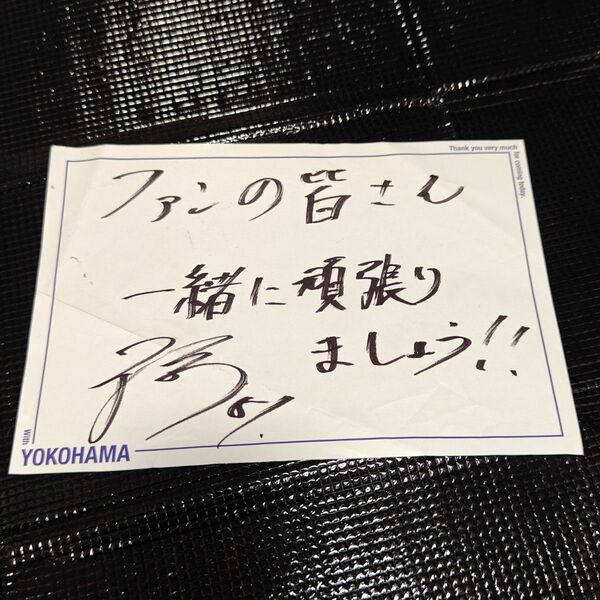 Thank you very much
for coming today.
ファンの皆さん
一緒に頑張り
ましょう!!
with
YOKOHAMA